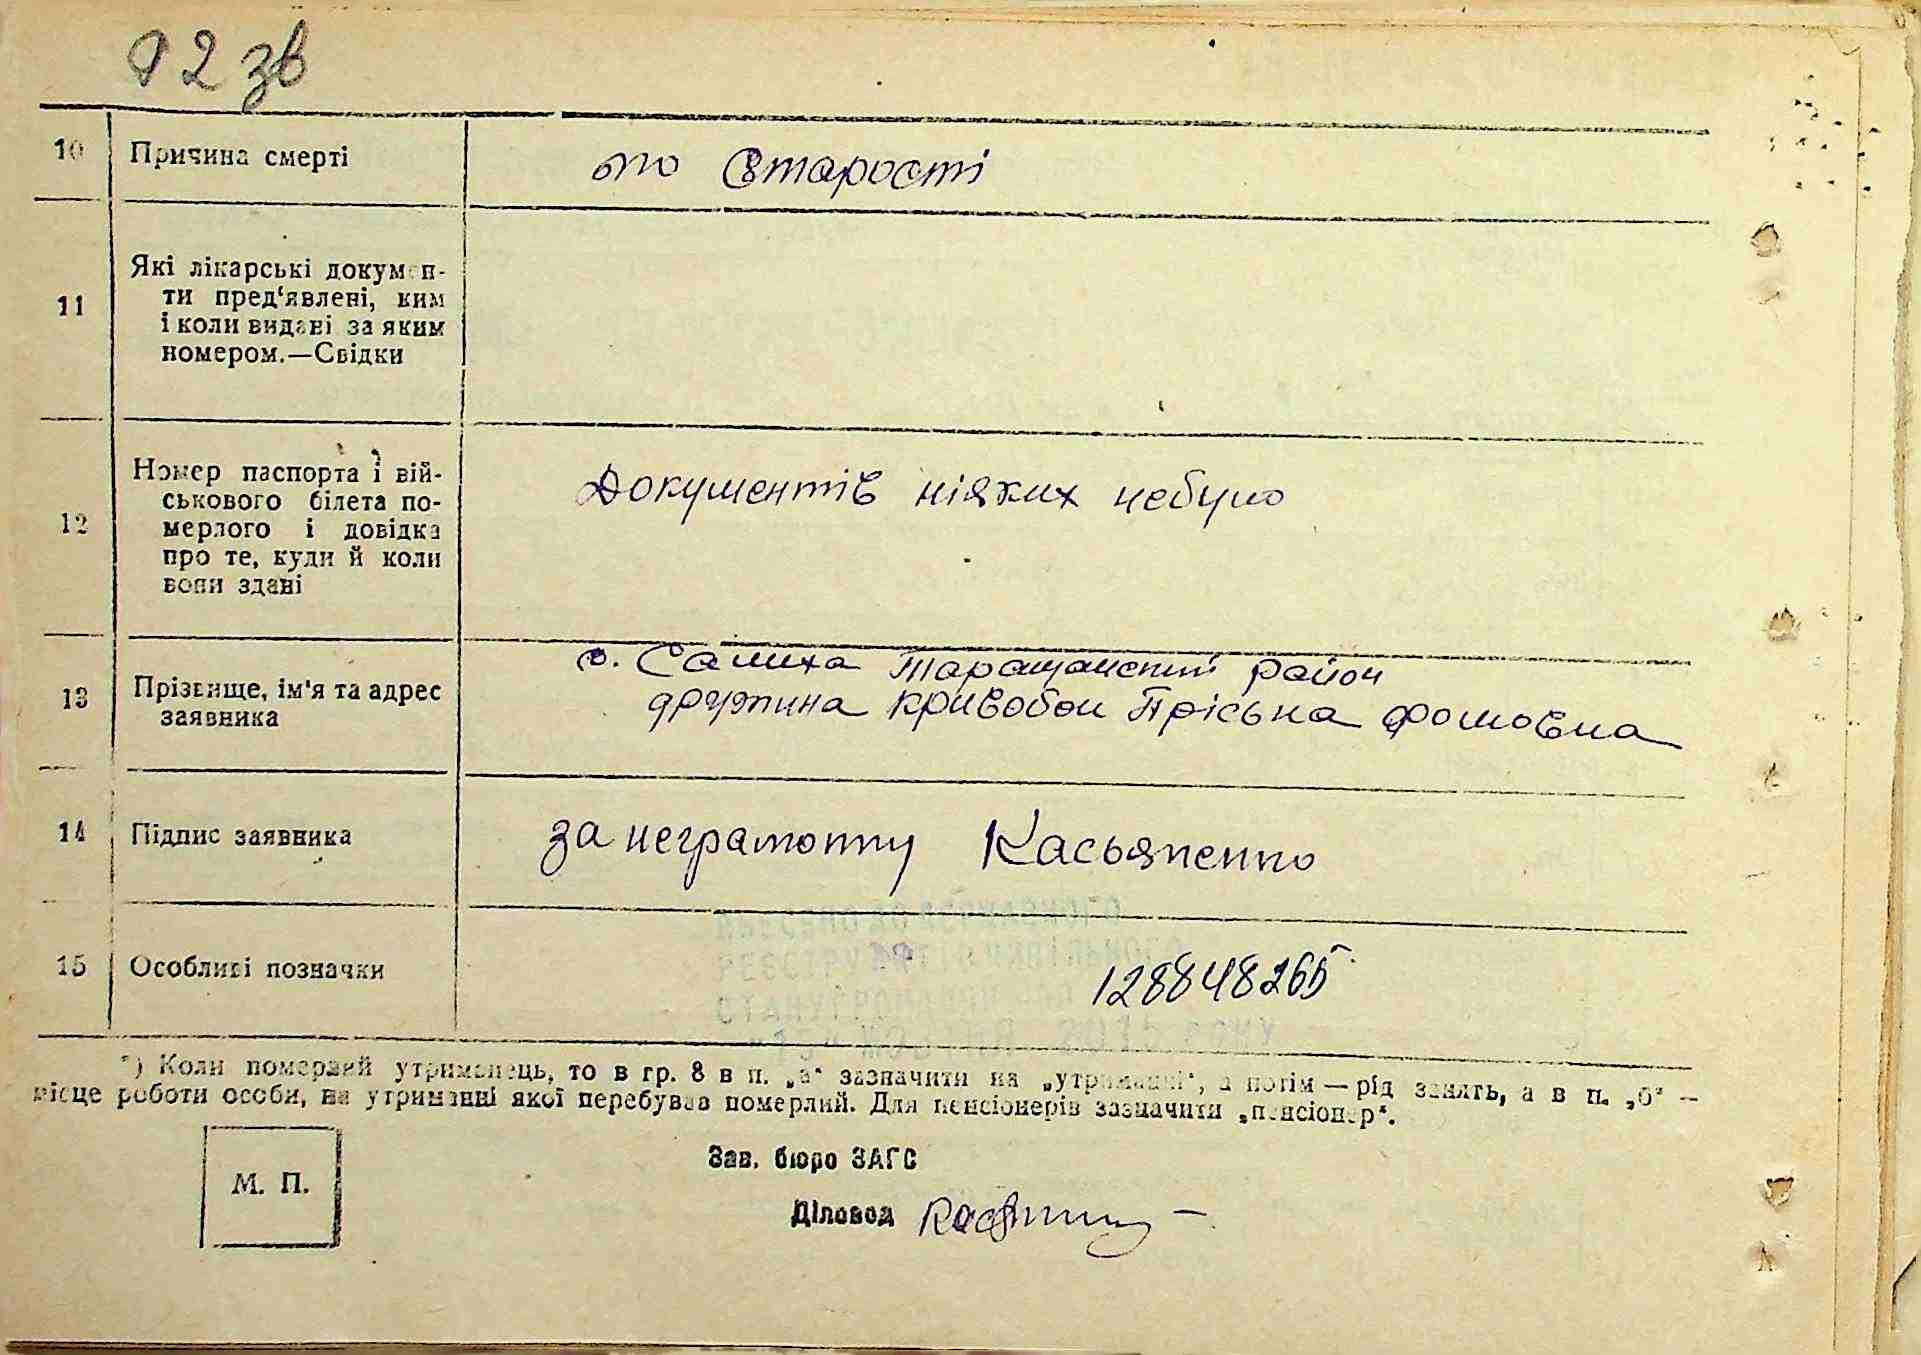 12 зв
10 Причина смерті по старості
11 Які лікарські докумен-
ти пред'явлені, ким
і коли видані за яким
номером.—Свідки
12 Номер паспорта і вій-
ськового білета по-
мерлого і довідка
про те, куди й коли
вони здані
Документів ніяких небуло
13 Прізвище, ім'я та адрес
заявника
с. Салиха Таращанский район
дружина Кривобок Пріська Фомовна
14 Підпис заявника за неграмотну Касьяненко
15 Особливі позначки 128848265
ВНЕСЕНО ДО ДЕРЖАВНОГО
РЕЄСТРУ АКТІВ ЦИВІЛЬНОГО
СТАНУ ГРОМАДЯН
"15" ЖОВТНЯ 2015 РОКУ
*) Коли померлий утриманець, то в гр. 8 в п. „а“ зазначити на „утриманні“, а потім — рід занять, а в п. „б“ —
місце роботи особи, на утриманні якої перебував померлий. Для пенсіонерів зазначити „пенсіонер“.
М. П.
Зав. бюро ЗАГС
Діловод